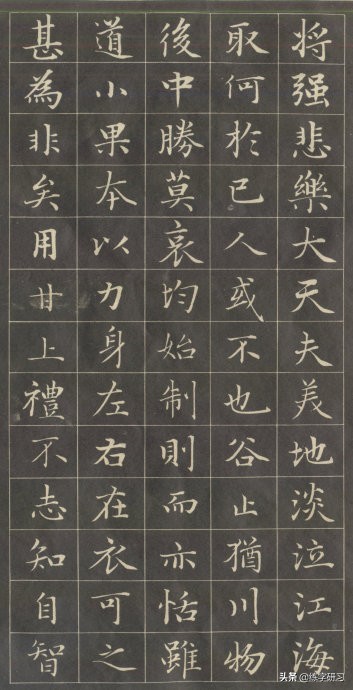 将强悲樂大天夫美地淡泣江海
取何於已人或不也谷止猶川物
後中勝莫哀均始制則而亦恬雖
道小果本以力身左右在衣可之
甚為非矣用甘上禮不志知自智
头条@练字研习